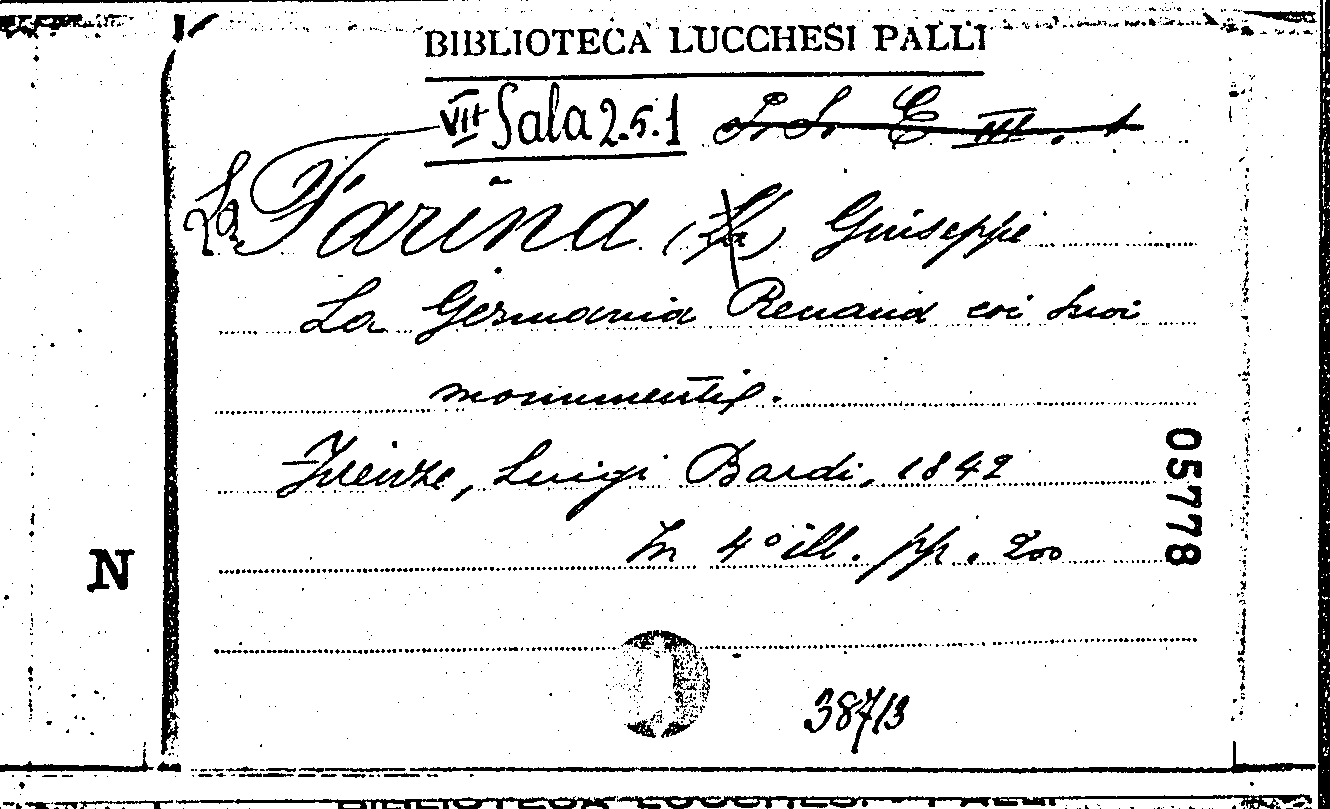 BIBLIOTECA LUCCHESI PALLI
VII Sala 2.5.1 S. S. E III. 1
La Farina (La) Giuseppe
La Germania Renana coi suoi
monumenti.
Firenze, Luigi Bardi, 1842
In 4° ill. pp. 200
05778
N
387/3
BIBLIOTECA LUCCHESI - PALLI